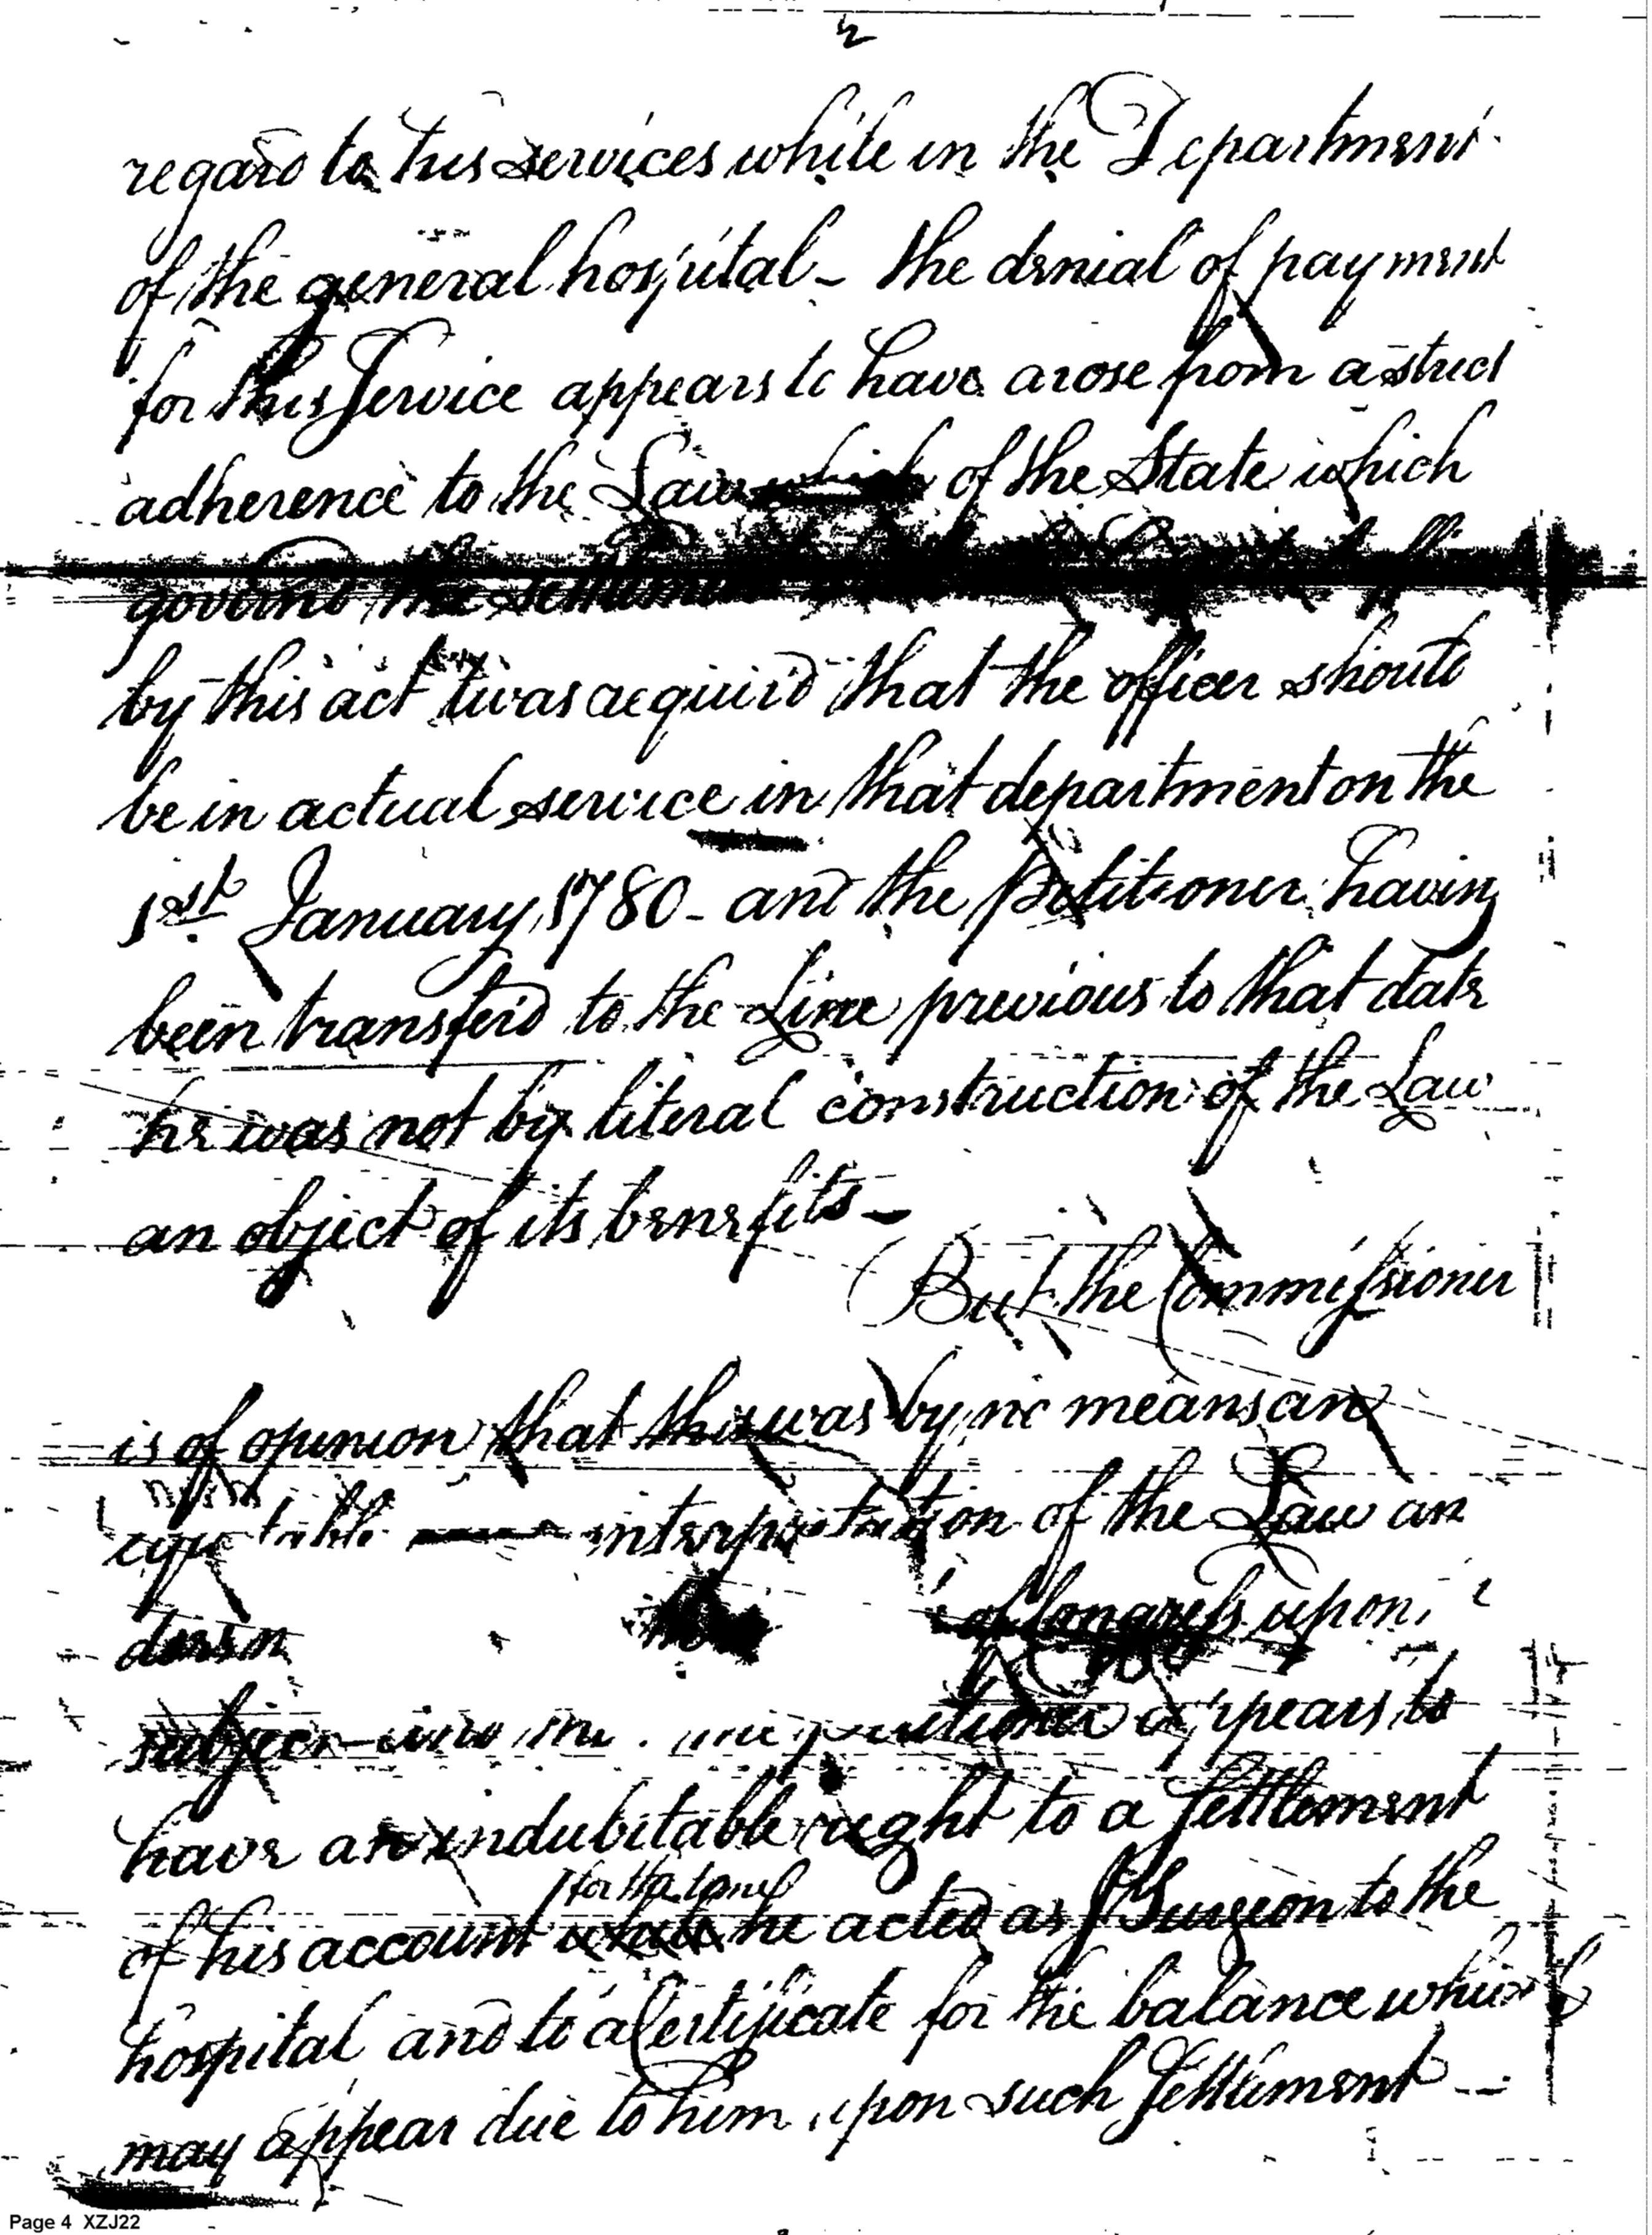 2
regard to his services while in the Department
of the general hospital - the denial of payment
for this Service appears to have arose from a strict
adherence to the Law which of the State which
governd the settlement
by this act twas requird that the officer should
be in actual service in that department on the
1st January 1780 - and the petitioner having
been transferd to the Line previous to that date
he was not by literal construction of the Law
an object of its benefits -
But the Commissioner
is of opinion that this was by no means an
equitable interpretation of the Law an
of Congress upon
subject the petitioner appears to
have an indubitable right to a Settlement
for the time
of his account while he acted as Surgeon to the
hospital and to a Certificate for the balance which
may appear due to him upon such Settlement -
Page 4 XZJ22